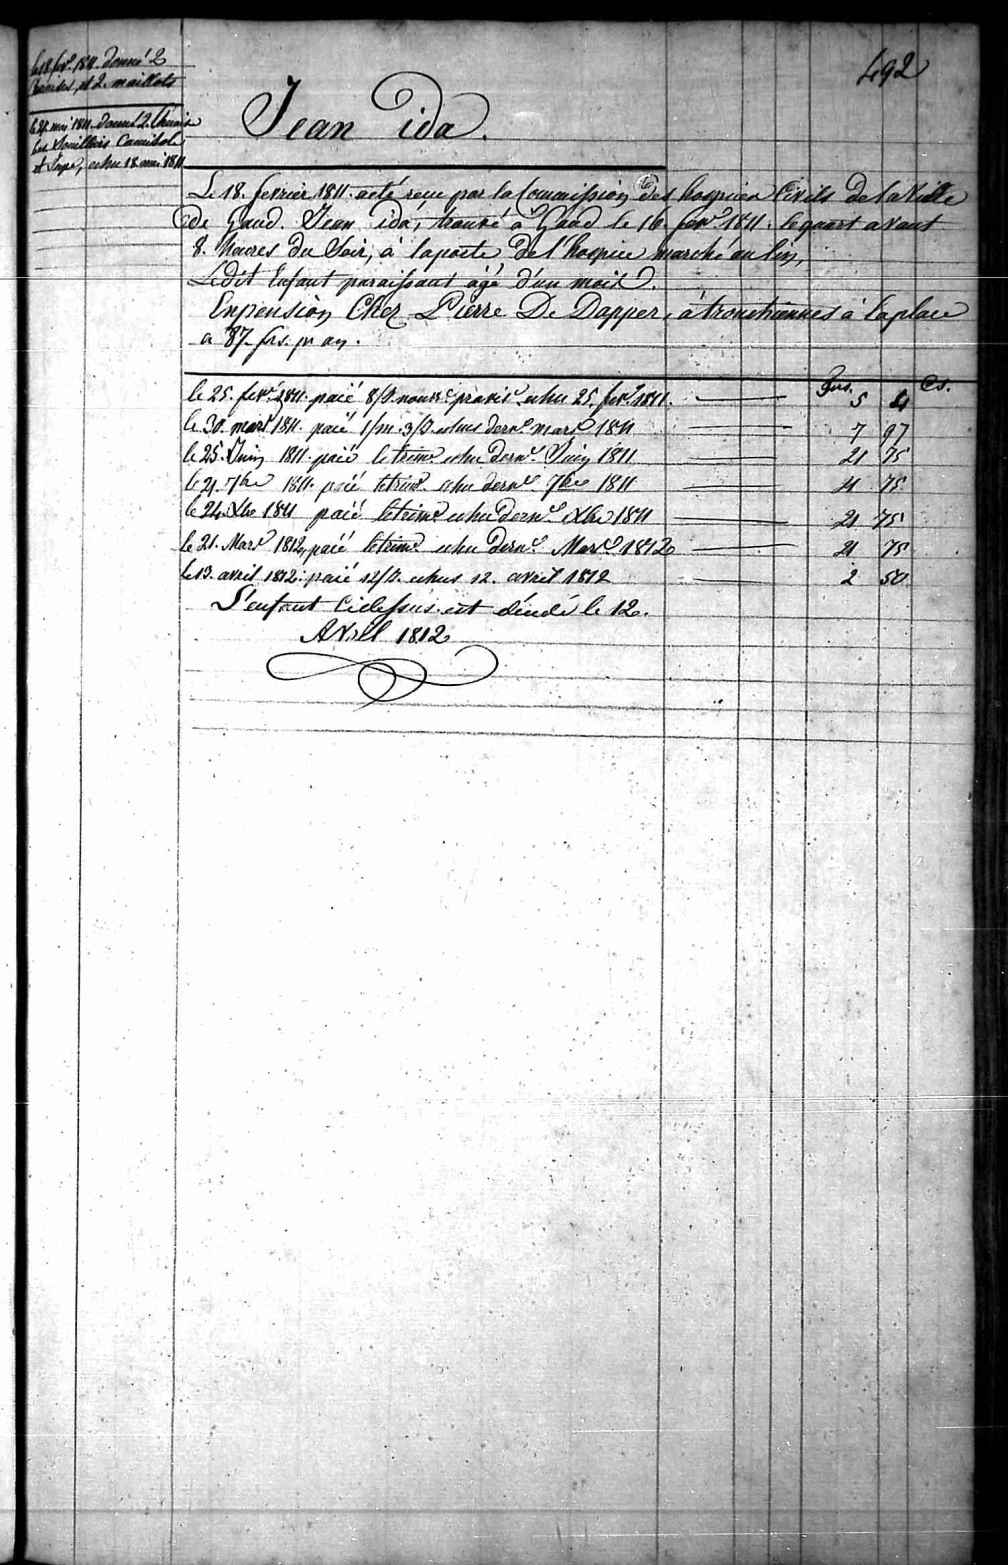 492
le 18 fevr. 1811. donné 2
Chemises, et 2. maillots
le 27. mai 1811. donné 2. Chemis
les Souilliers Camisole
et Jupe, echu 18. mai 1811
Jean ida.
Le 18. fevrier 1811. acté recu par la Commission des hospices Civils de la Ville
de Gand. Jean ida, trouvé à Gand le 16 fevr. 1811. le quart avant
8. heures du Soir, à la porte de l'hospice marché au lin,
Ledit Enfant paraissant âgé d'un mois.
En pension Chez Pierre De Dapper, à tronchiennes à la place
a 87 frs. pr an.
frs. Cs.
le 25. fevr. 1811. paié 8/J. nourr. provis. echu 25. fevr. 1811. 5 4
le 30. mars 1811. paié 1/m. 3/J echus dernr. mars 1811 7 97
le 25. Juin 1811. paié le trime. echu dernr. Juin 1811 21 75
le 21. 7bre 1811. paié le trime. echu dernr. 7bre 1811 21 75
le 24. Xbre 1811 paié le trime echu dernr. Xbre 1811 21 75
le 21. Mars 1812, paié le trime echu dernr. Mars 1812 21 75
le 13. avril 1812. paié 12/J. echus 12. avril 1812 2 50
L'enfant Cidessus est décédé le 12.
Avril 1812